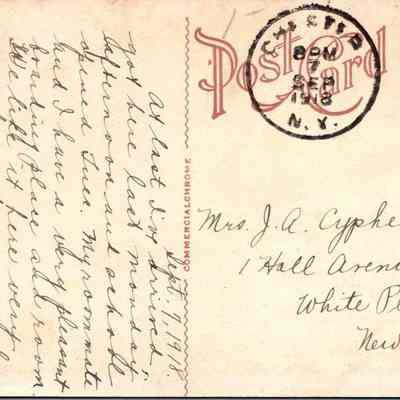 Post Card
CHESTER
8 PM
7
SEP
1918
N.Y.
COMMERCIALCHROME
Sept. 7, 1918.
At last I've arrived,
got here last Monday
afternoon and school
opened Tues. My roommate
and I have a very pleasant
boarding place and room.
We like it here very
Mrs. J. A. Cyphe
1 Hall Aven
White Pl
New